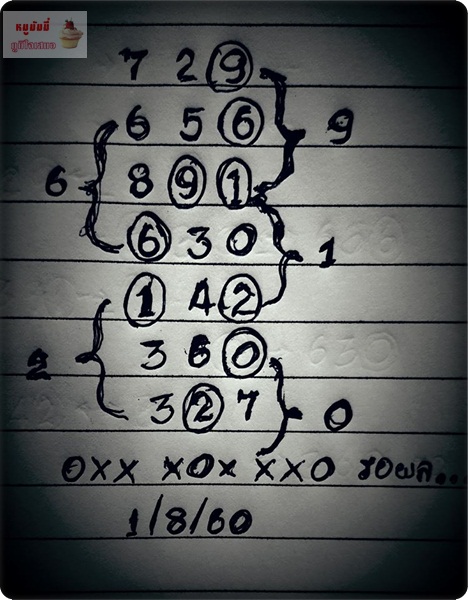 หมูบัมมี่
ภูมิใจเสนอ
7 2 9
6 5 6 9
6 8 9 1
6 3 0 1
1 4 2
3 6 0
2 3 2 7 0
0xx x0x xx0 รอผล...
1/8/60